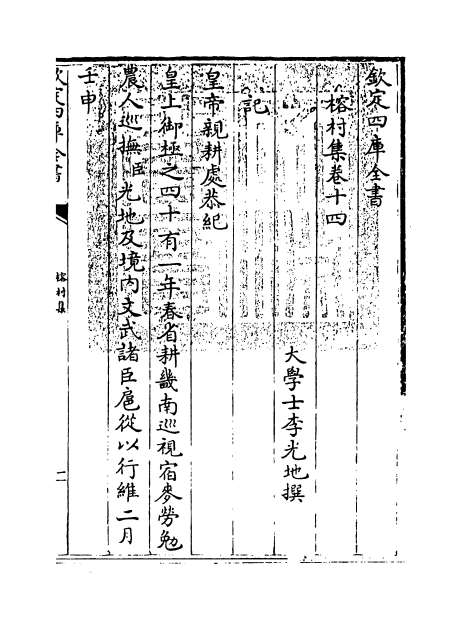 欽定四庫全書
榕村集卷十四
大學士李光地撰
記
皇帝親耕處恭紀
皇上御極之四十有一年春省耕畿南巡視宿麥勞勉
農人巡撫臣光地及境內文武諸臣扈從以行維二月
壬申
欽定四庫全書
榕村集